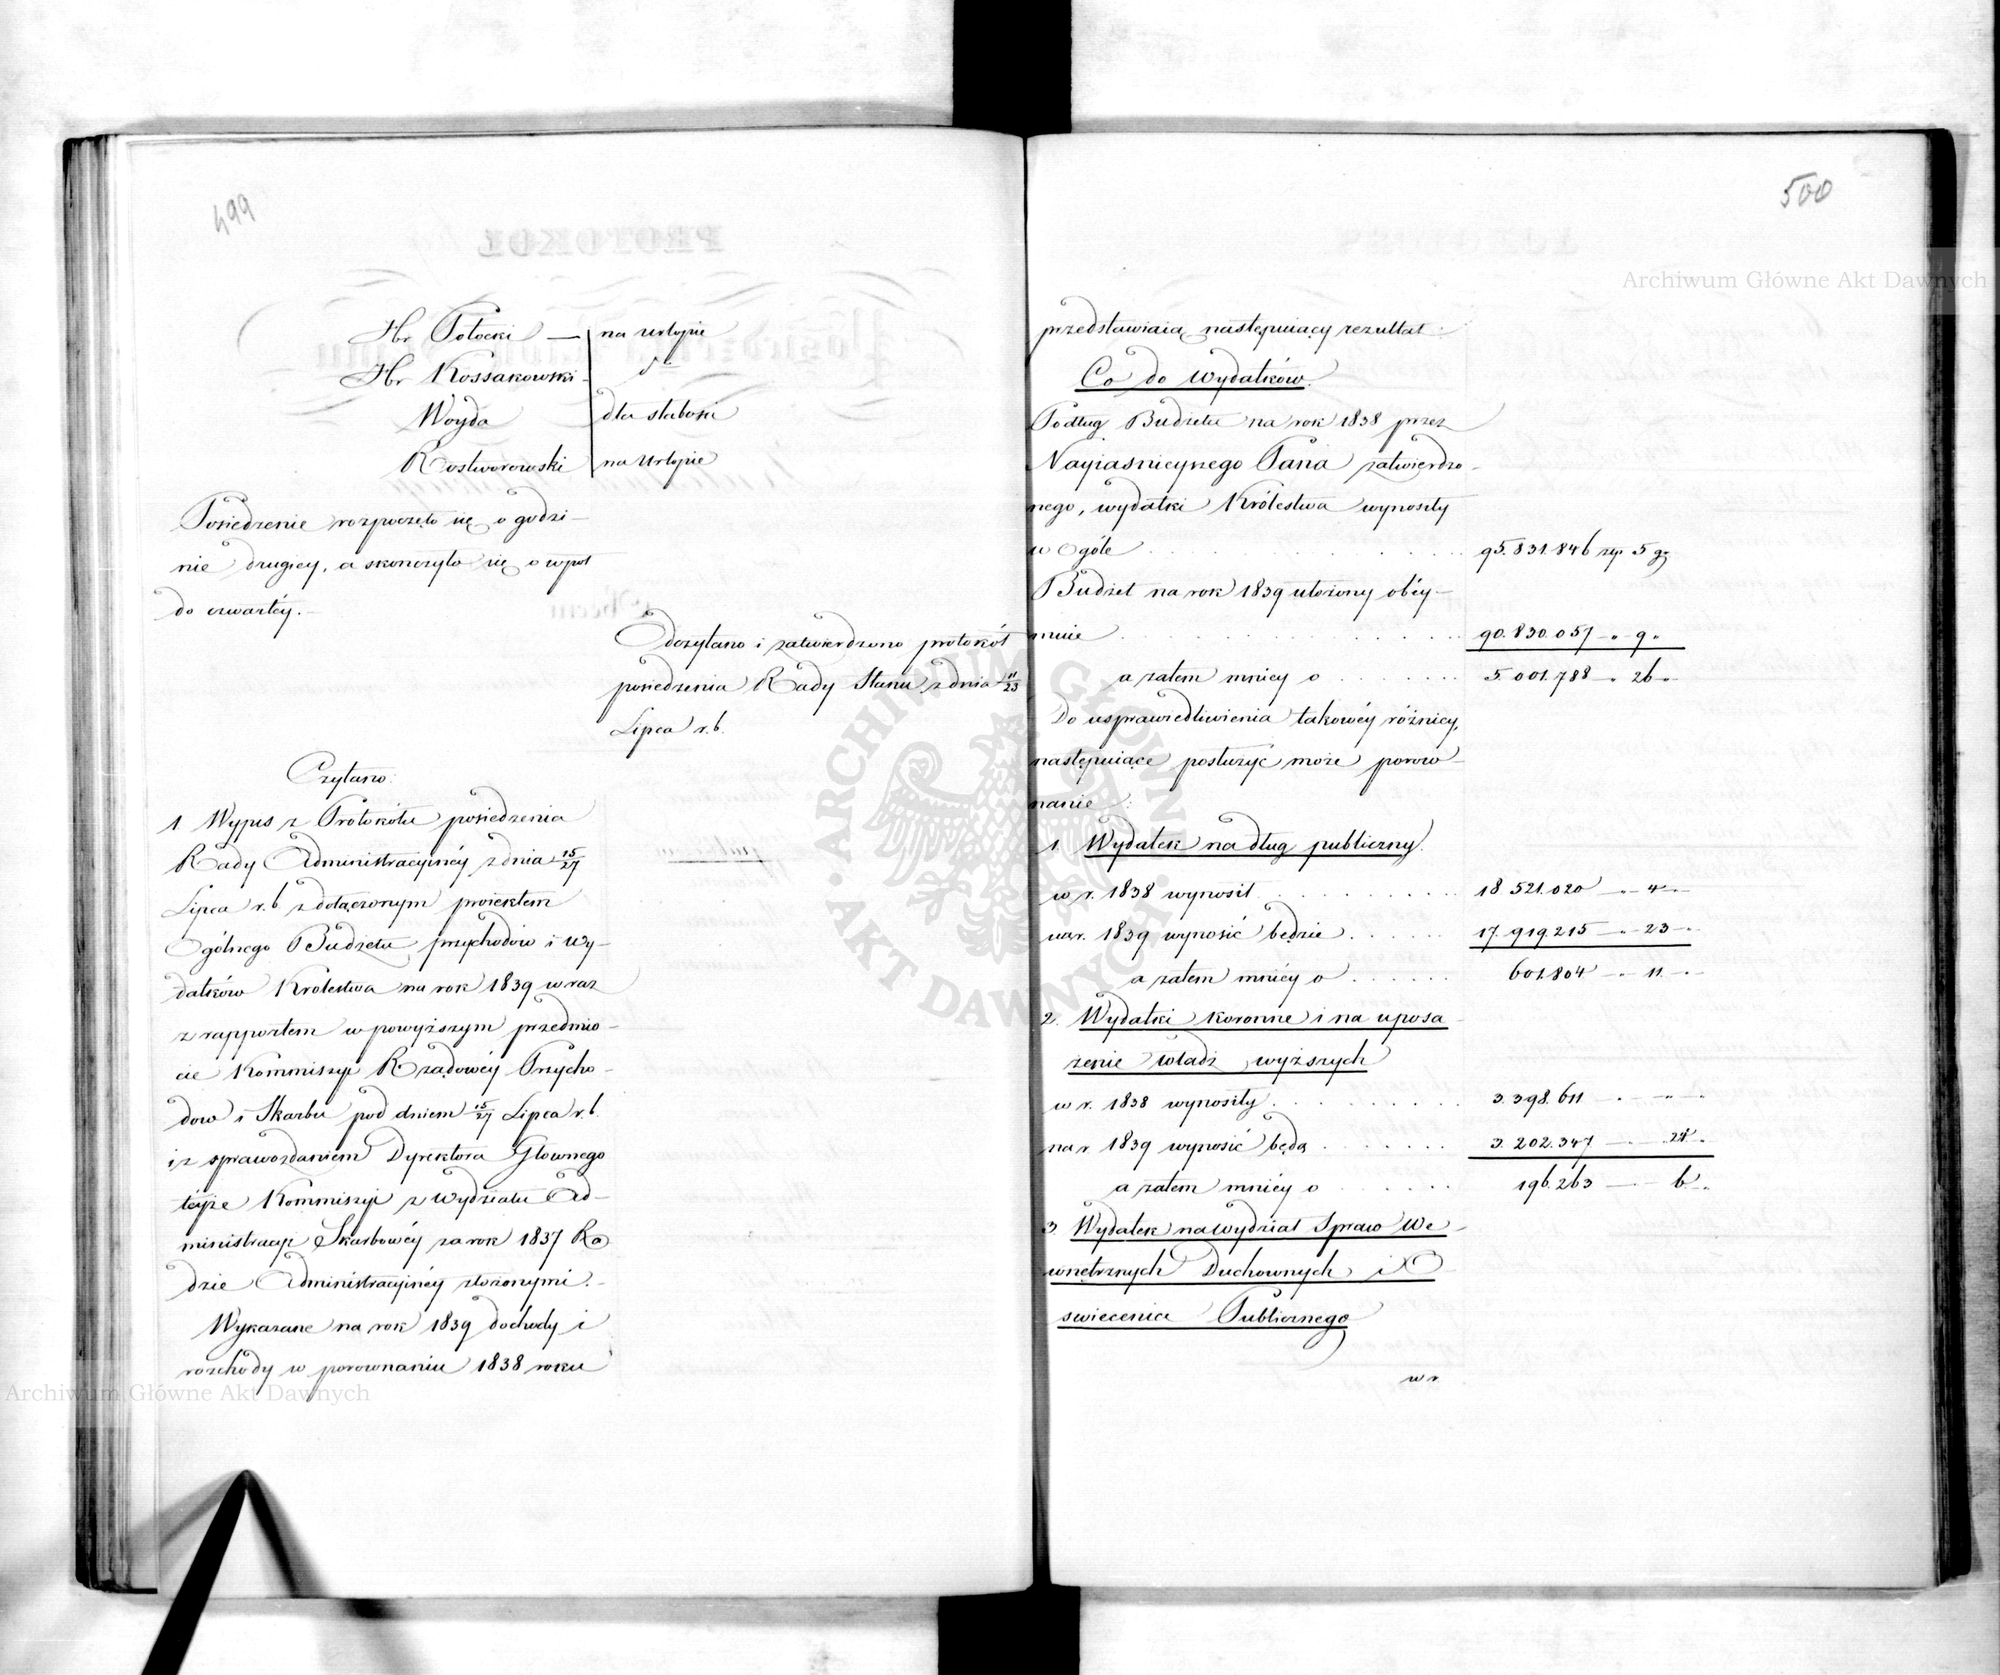 499
Hr Potocki — na urlopie
Hr Kossakowski - dto
Woyda dla słabości
Rostworowski na urlopie
Posiedzenie rozpoczęło się o godzi-
nie drugiey, a skonczyło się o wpoł
do czwartéy.-
Odczytano i zatwierdzono protokół
posiedzenia Rady Stanu z dnia 11/23
Lipca r. b.
Czytano:
1 Wypis z Protokółu posiedzenia
Rady Administracyinéy z dnia 15/27
Lipca r. b z dołączonym proiektem
Ogólnego Budżetu przychodów i wy-
datków Królestwa na rok 1839 wraz
z rapportem w powyższym przedmio-
cie Kommissyi Rządowéy Przycho-
dow i Skarbu pod dniem 15/27 Lipca r. b.
i z sprawozdaniem Dyrektora Głownego
téyże Kommissyi z Wydziału Ad-
ministracyi Skarbowéy za rok 1837 Ra
dzie Administracyinéy złożonymi.-
Wykazane na rok 1839 dochody i
rozchody w porownaniu 1838 roku
500
przedstawiaią następuiący rezultat:
Co do Wydatków.
Podług Budżetu na rok 1838 przez
Nayiasnieyszego Pana zatwierdzo-
nego, wydatki Królestwa wynosiły
w ogóle . . . . . . 95.831.846 zp. 5 g.
Budżet na rok 1839 ułożony obéy-
muie . . . . . . 90.830.057 -„ 9„
a zatem mniey o . . . . . 5.001.788 -„ 26„
Do usprawiedliwienia takowéy różnicy,
następuiące posłużyć może porow-
nanie:
1. Wydatek na dług publiczny.
w r. 1838 wynosił . . . . . 18.521.020 -„ 4 -„
na r. 1839 wynosić będzie . . . . 17.919.215 -„ 23 -„
a zatem mniéy o . . . . . 601.804 -„ 11 -„
2. Wydatki koronne i na uposa-
żenie władz wyższych
w r. 1838 wynosiły . . . . . 3.398.611 -„ -„
na r. 1839 wynosić będą . . . . 3.202.347 -„ 24 „
a zatem mniey o . . . . . 196.263 -„ 6 „
3. Wydatek na wydział Spraw We-
wnętrznych Duchownych i O-
swiecenia Publicznego
w r.
Archiwum Główne Akt Dawnych
Archiwum Główne Akt Dawnych
ARCHIWUM GŁÓWNE · AKT DAWNYCH ·